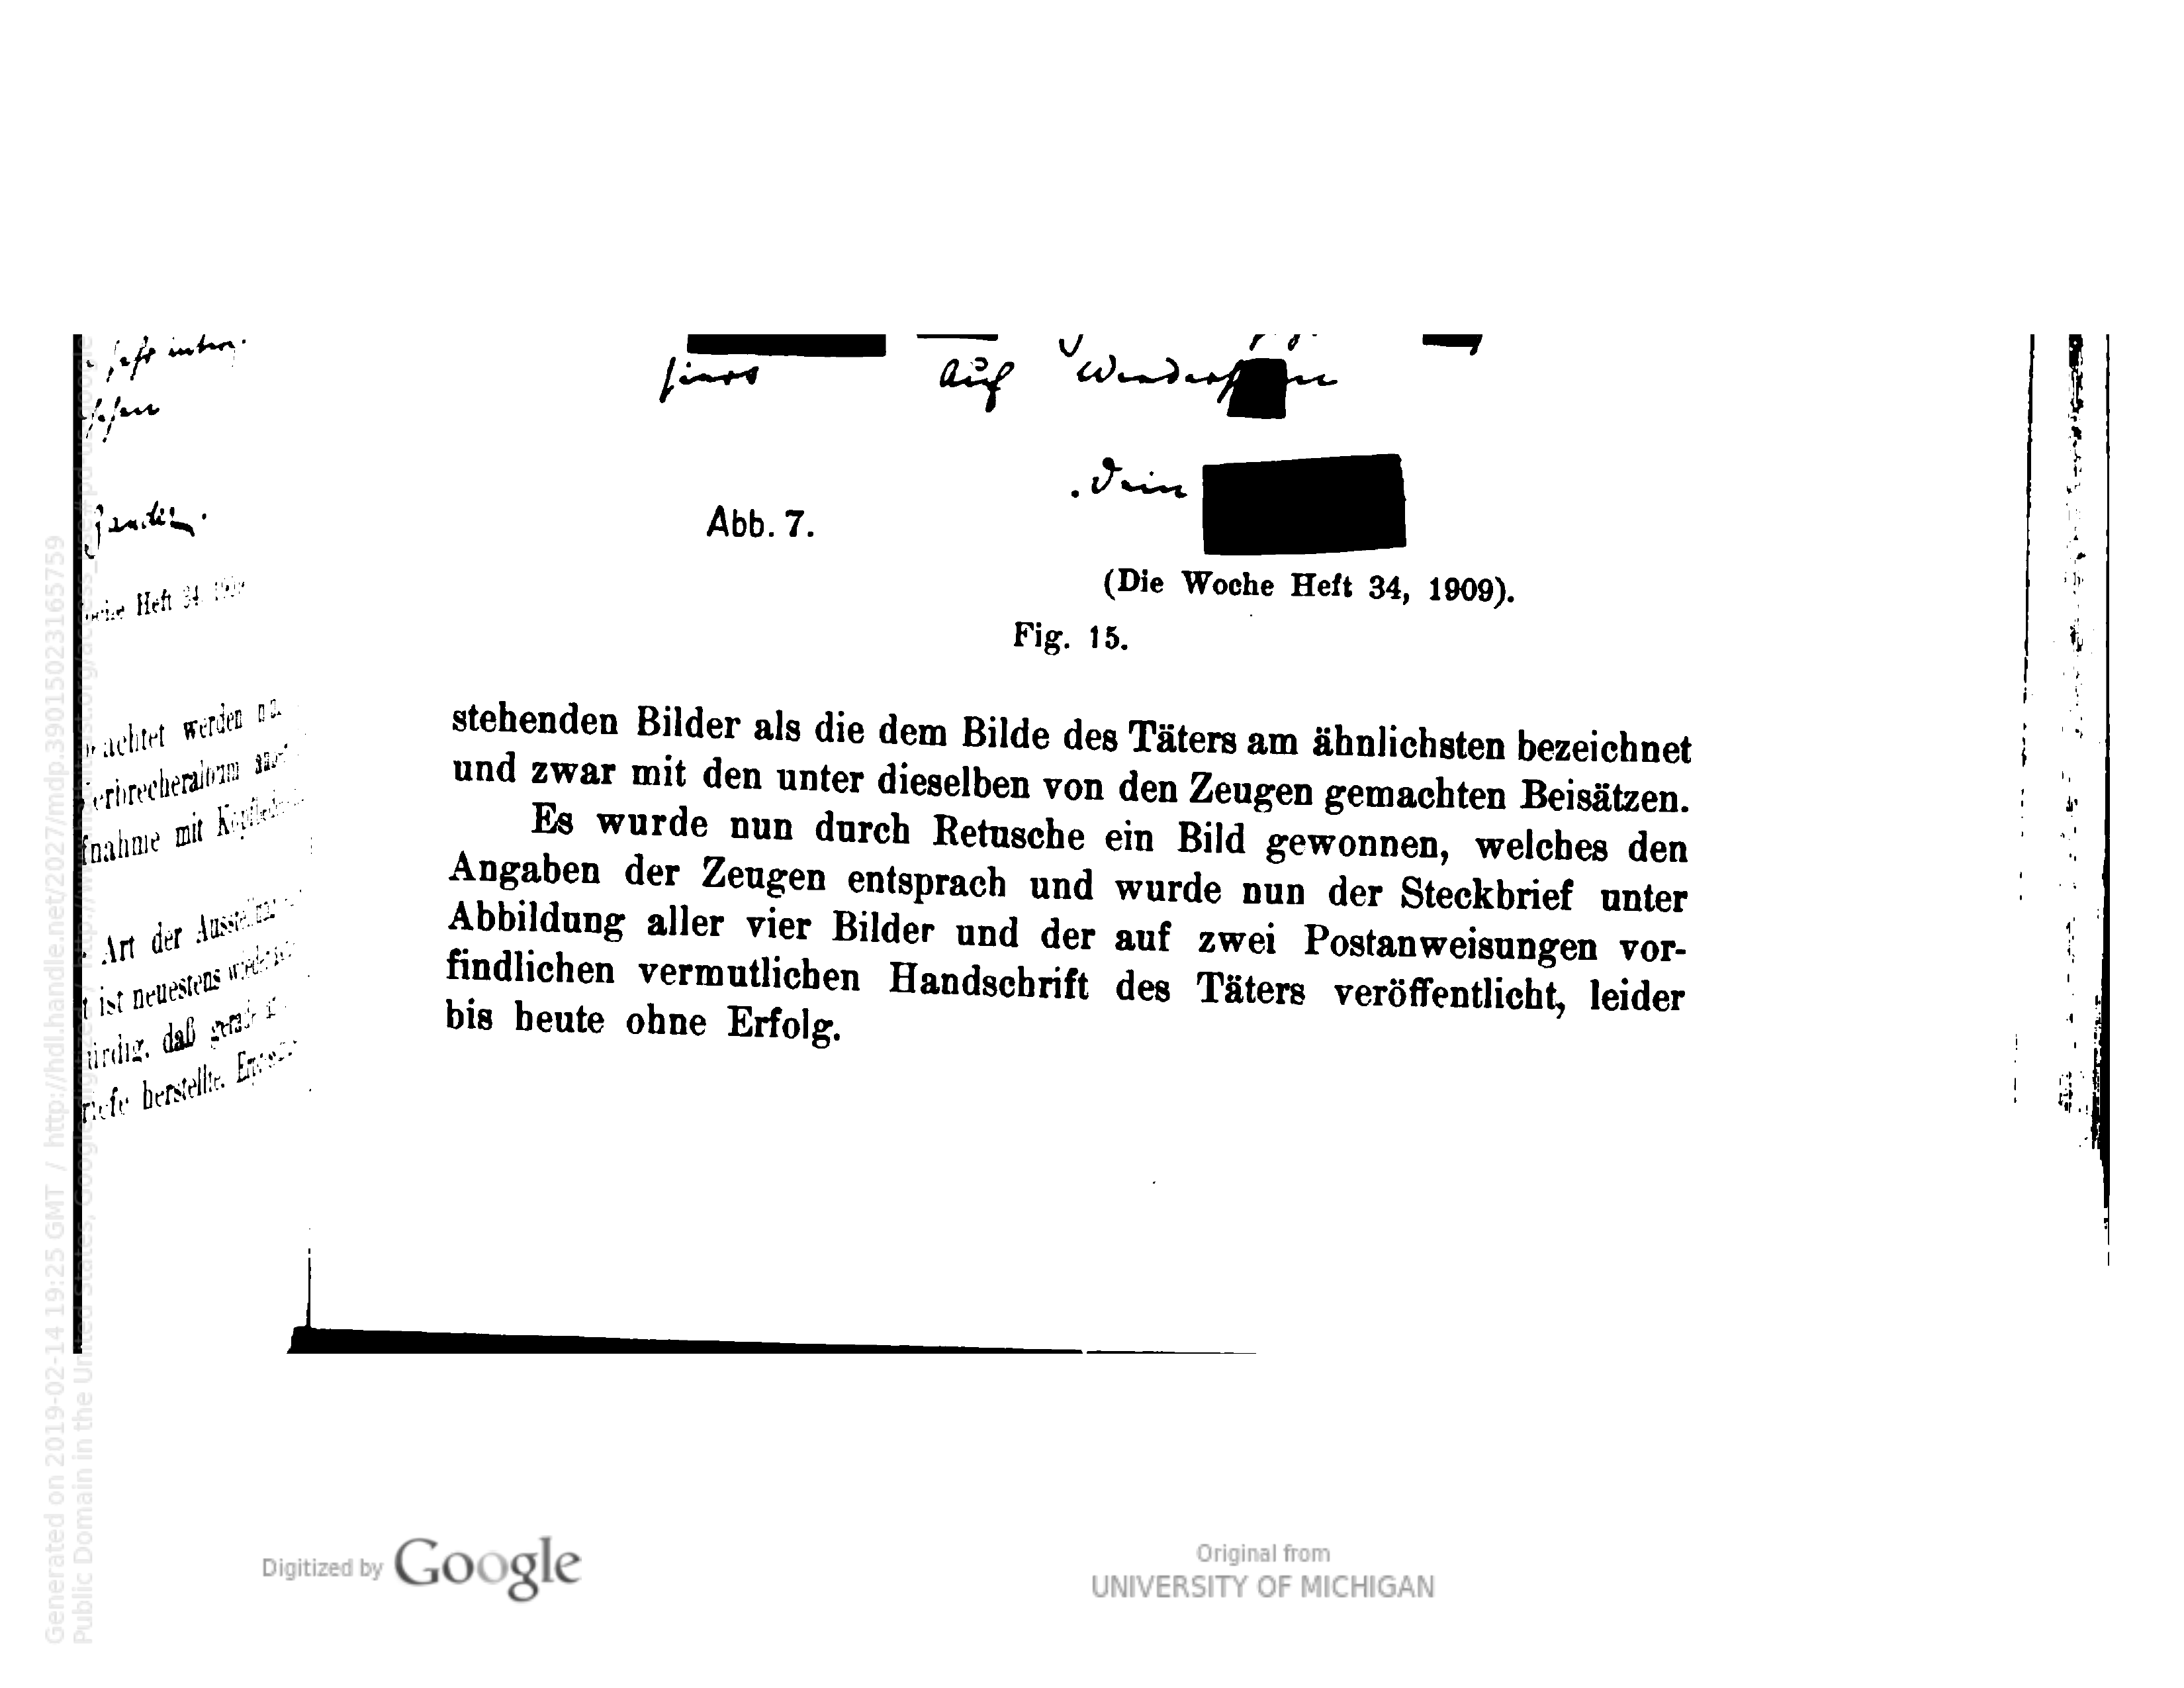 auf
Dein
Abb. 7.
(Die Woche Heft 34, 1909).
Fig. 15.
stehenden Bilder als die dem Bilde des Täters am ähnlichsten bezeichnet
und zwar mit den unter dieselben von den Zeugen gemachten Beisätzen.
Es wurde nun durch Retusche ein Bild gewonnen, welches den
Angaben der Zeugen entsprach und wurde nun der Steckbrief unter
Abbildung aller vier Bilder und der auf zwei Postanweisungen vor-
findlichen vermutlichen Handschrift des Täters veröffentlicht, leider
bis heute ohne Erfolg.
Heft 34
werden
mit
Art der
ist neuestens
daß
herstellte.
Generated on 2019-02-14 19:25 GMT / http://hdl.handle.net/2027/mdp.39015023165759
Public Domain in the United States,
Digitized by Google
Original from
UNIVERSITY OF MICHIGAN